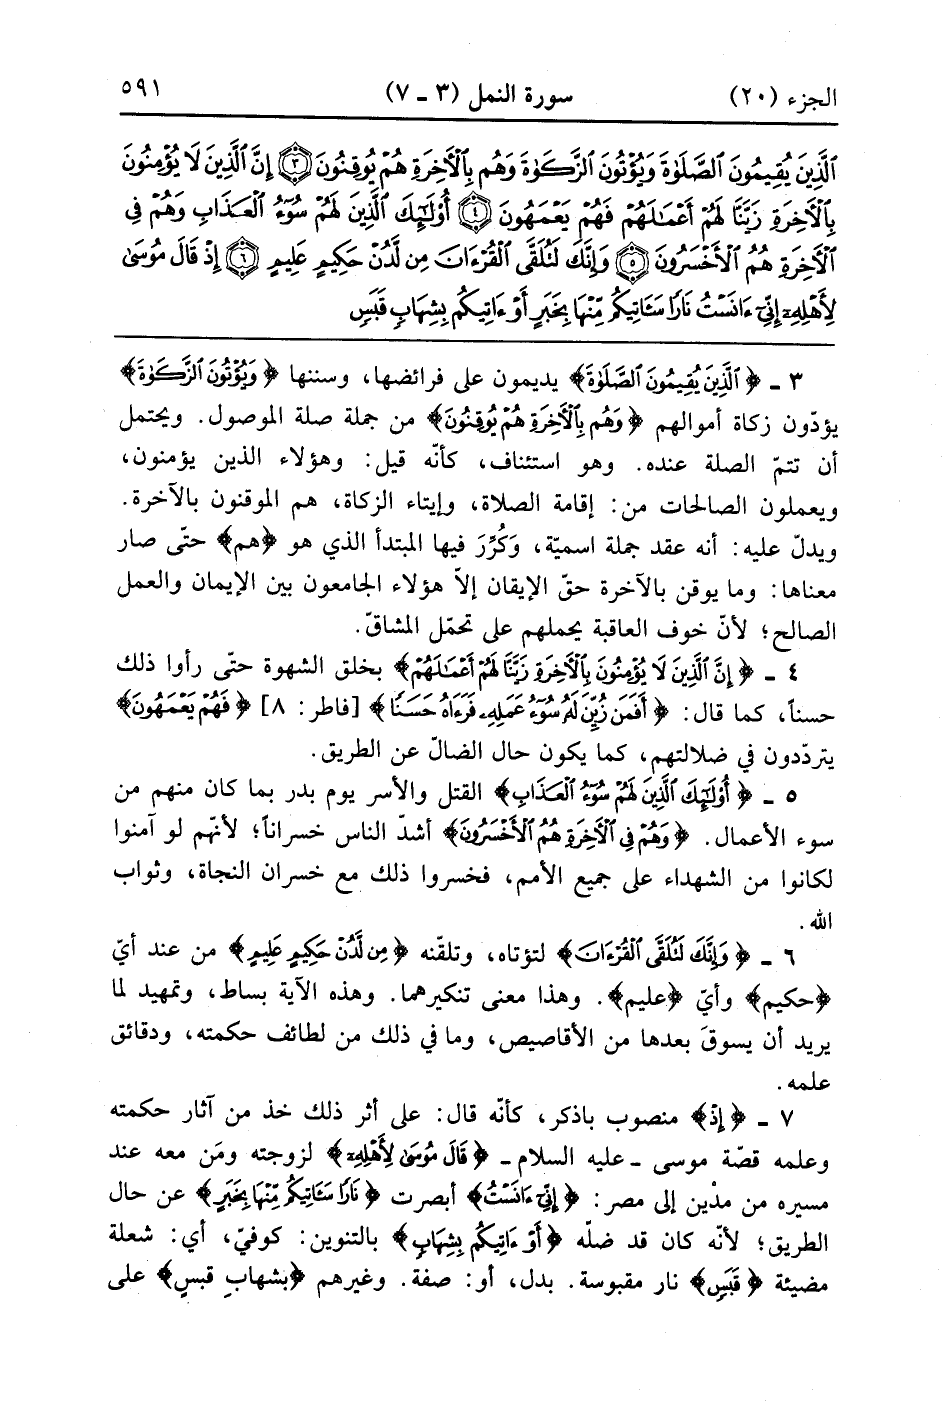 الجزء (٢٠) سورة النمل (٣ ـ ٧) ٥٩١
ٱلَّذِينَ يُقِيمُونَ ٱلصَّلَوٰةَ وَيُؤْتُونَ ٱلزَّكَوٰةَ وَهُم بِٱلْأَخِرَةِ هُمْ يُوقِنُونَ ۝٣ إِنَّ ٱلَّذِينَ لَا يُؤْمِنُونَ
بِٱلْأَخِرَةِ زَيَّنَّا لَهُمْ أَعْمَٰلَهُمْ فَهُمْ يَعْمَهُونَ ۝٤ أُوْلَٰٓئِكَ ٱلَّذِينَ لَهُمْ سُوٓءُ ٱلْعَذَابِ وَهُمْ فِى
ٱلْأَخِرَةِ هُمُ ٱلْأَخْسَرُونَ ۝٥ وَإِنَّكَ لَتُلَقَّى ٱلْقُرْءَانَ مِن لَّدُنْ حَكِيمٍ عَلِيمٍ ۝٦ إِذْ قَالَ مُوسَىٰ
لِأَهْلِهِۦٓ إِنِّىٓ ءَانَسْتُ نَارًا سَـَٔاتِيكُم مِّنْهَا بِخَبَرٍ أَوْ ءَاتِيكُم بِشِهَابٍ قَبَسٍ
٣ ـ ﴿ٱلَّذِينَ يُقِيمُونَ ٱلصَّلَوٰةَ﴾ يديمون على فرائضها، وسننها ﴿وَيُؤْتُونَ ٱلزَّكَوٰةَ﴾
يؤدّون زكاة أموالهم ﴿وَهُم بِٱلْأَخِرَةِ هُمْ يُوقِنُونَ﴾ من جملة صلة الموصول. ويحتمل
أن تتمّ الصلة عنده. وهو استئناف، كأنّه قيل: وهؤلاء الذين يؤمنون،
ويعملون الصالحات من: إقامة الصلاة، وإيتاء الزكاة، هم الموقنون بالآخرة.
ويدلّ عليه: أنه عقد جملة اسميّة، وَكُرِّرَ فيها المبتدأ الذي هو ﴿هم﴾ حتّى صار
معناها: وما يوقن بالآخرة حقّ الإيقان إلاّ هؤلاء الجامعون بين الإيمان والعمل
الصالح؛ لأنّ خوف العاقبة يحملهم على تحمّل المشاقّ.
٤ ـ ﴿إِنَّ ٱلَّذِينَ لَا يُؤْمِنُونَ بِٱلْأَخِرَةِ زَيَّنَّا لَهُمْ أَعْمَٰلَهُمْ﴾ بخلق الشهوة حتّى رأوا ذلك
حسناً، كما قال: ﴿أَفَمَن زُيِّنَ لَهُۥ سُوٓءُ عَمَلِهِۦ فَرَءَاهُ حَسَنًا﴾ [فاطر: ٨] ﴿فَهُمْ يَعْمَهُونَ﴾
يتردّدون في ضلالتهم، كما يكون حال الضالّ عن الطريق.
٥ ـ ﴿أُوْلَٰٓئِكَ ٱلَّذِينَ لَهُمْ سُوٓءُ ٱلْعَذَابِ﴾ القتل والأسر يوم بدر بما كان منهم من
سوء الأعمال. ﴿وَهُمْ فِى ٱلْأَخِرَةِ هُمُ ٱلْأَخْسَرُونَ﴾ أشدّ الناس خسراناً؛ لأنّهم لو آمنوا
لكانوا من الشهداء على جميع الأمم، فخسروا ذلك مع خسران النجاة، وثواب
الله.
٦ ـ ﴿وَإِنَّكَ لَتُلَقَّى ٱلْقُرْءَانَ﴾ لتؤتاه، وتلقّنه ﴿مِن لَّدُنْ حَكِيمٍ عَلِيمٍ﴾ من عند أيّ
﴿حكيم﴾ وأيّ ﴿عليم﴾. وهذا معنى تنكيرهما. وهذه الآية بساط، وتمهيد لما
يريد أن يسوقَ بعدها من الأقاصيص، وما في ذلك من لطائف حكمته، ودقائق
علمه.
٧ ـ ﴿إِذْ﴾ منصوب باذكر، كأنّه قال: على أثر ذلك خذ من آثار حكمته
وعلمه قصّة موسى ـ عليه السلام ـ ﴿قَالَ مُوسَىٰ لِأَهْلِهِۦٓ﴾ لزوجته ومَن معه عند
مسيره من مدْين إلى مصر: ﴿إِنِّىٓ ءَانَسْتُ﴾ أبصرت ﴿نَارًا سَـَٔاتِيكُم مِّنْهَا بِخَبَرٍ﴾ عن حال
الطريق؛ لأنّه كان قد ضلّه ﴿أَوْ ءَاتِيكُم بِشِهَابٍ﴾ بالتنوين: كوفيّ، أي: شعلة
مضيئة ﴿قَبَسٍ﴾ نار مقبوسة. بدل، أو: صفة. وغيرهم ﴿بشهابِ قبسٍ﴾ على